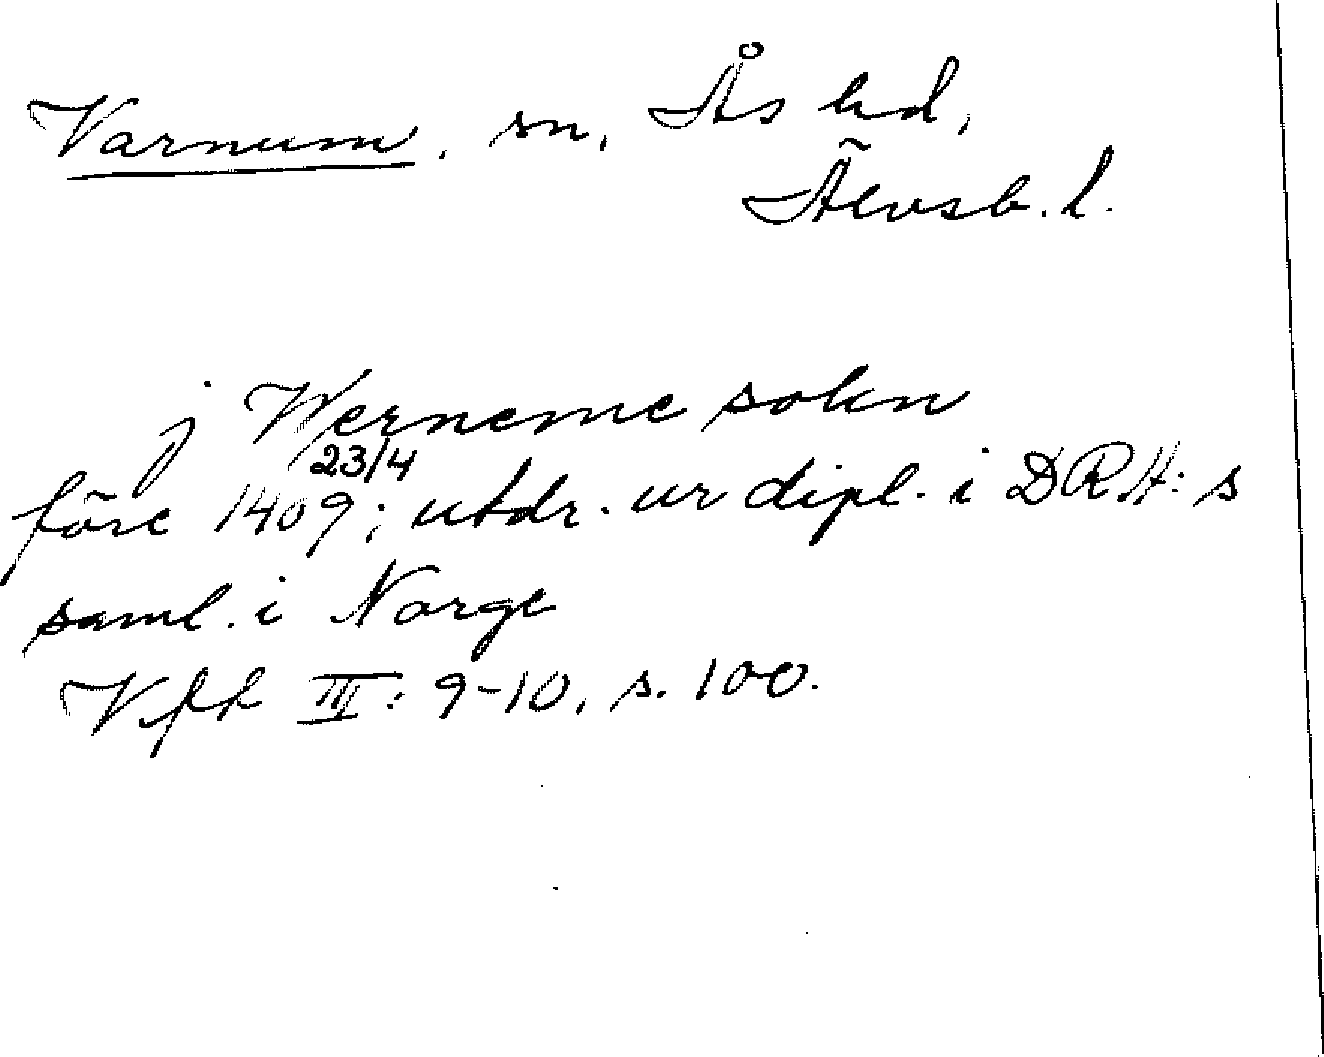 Varnum, sn, Ås hd,
Älvsb. l.
j Werneme sokn
23/4
före 1409; utdr. ur dipl. i DRH:s
saml. i Norge
Vfk III: 9-10, s. 100.